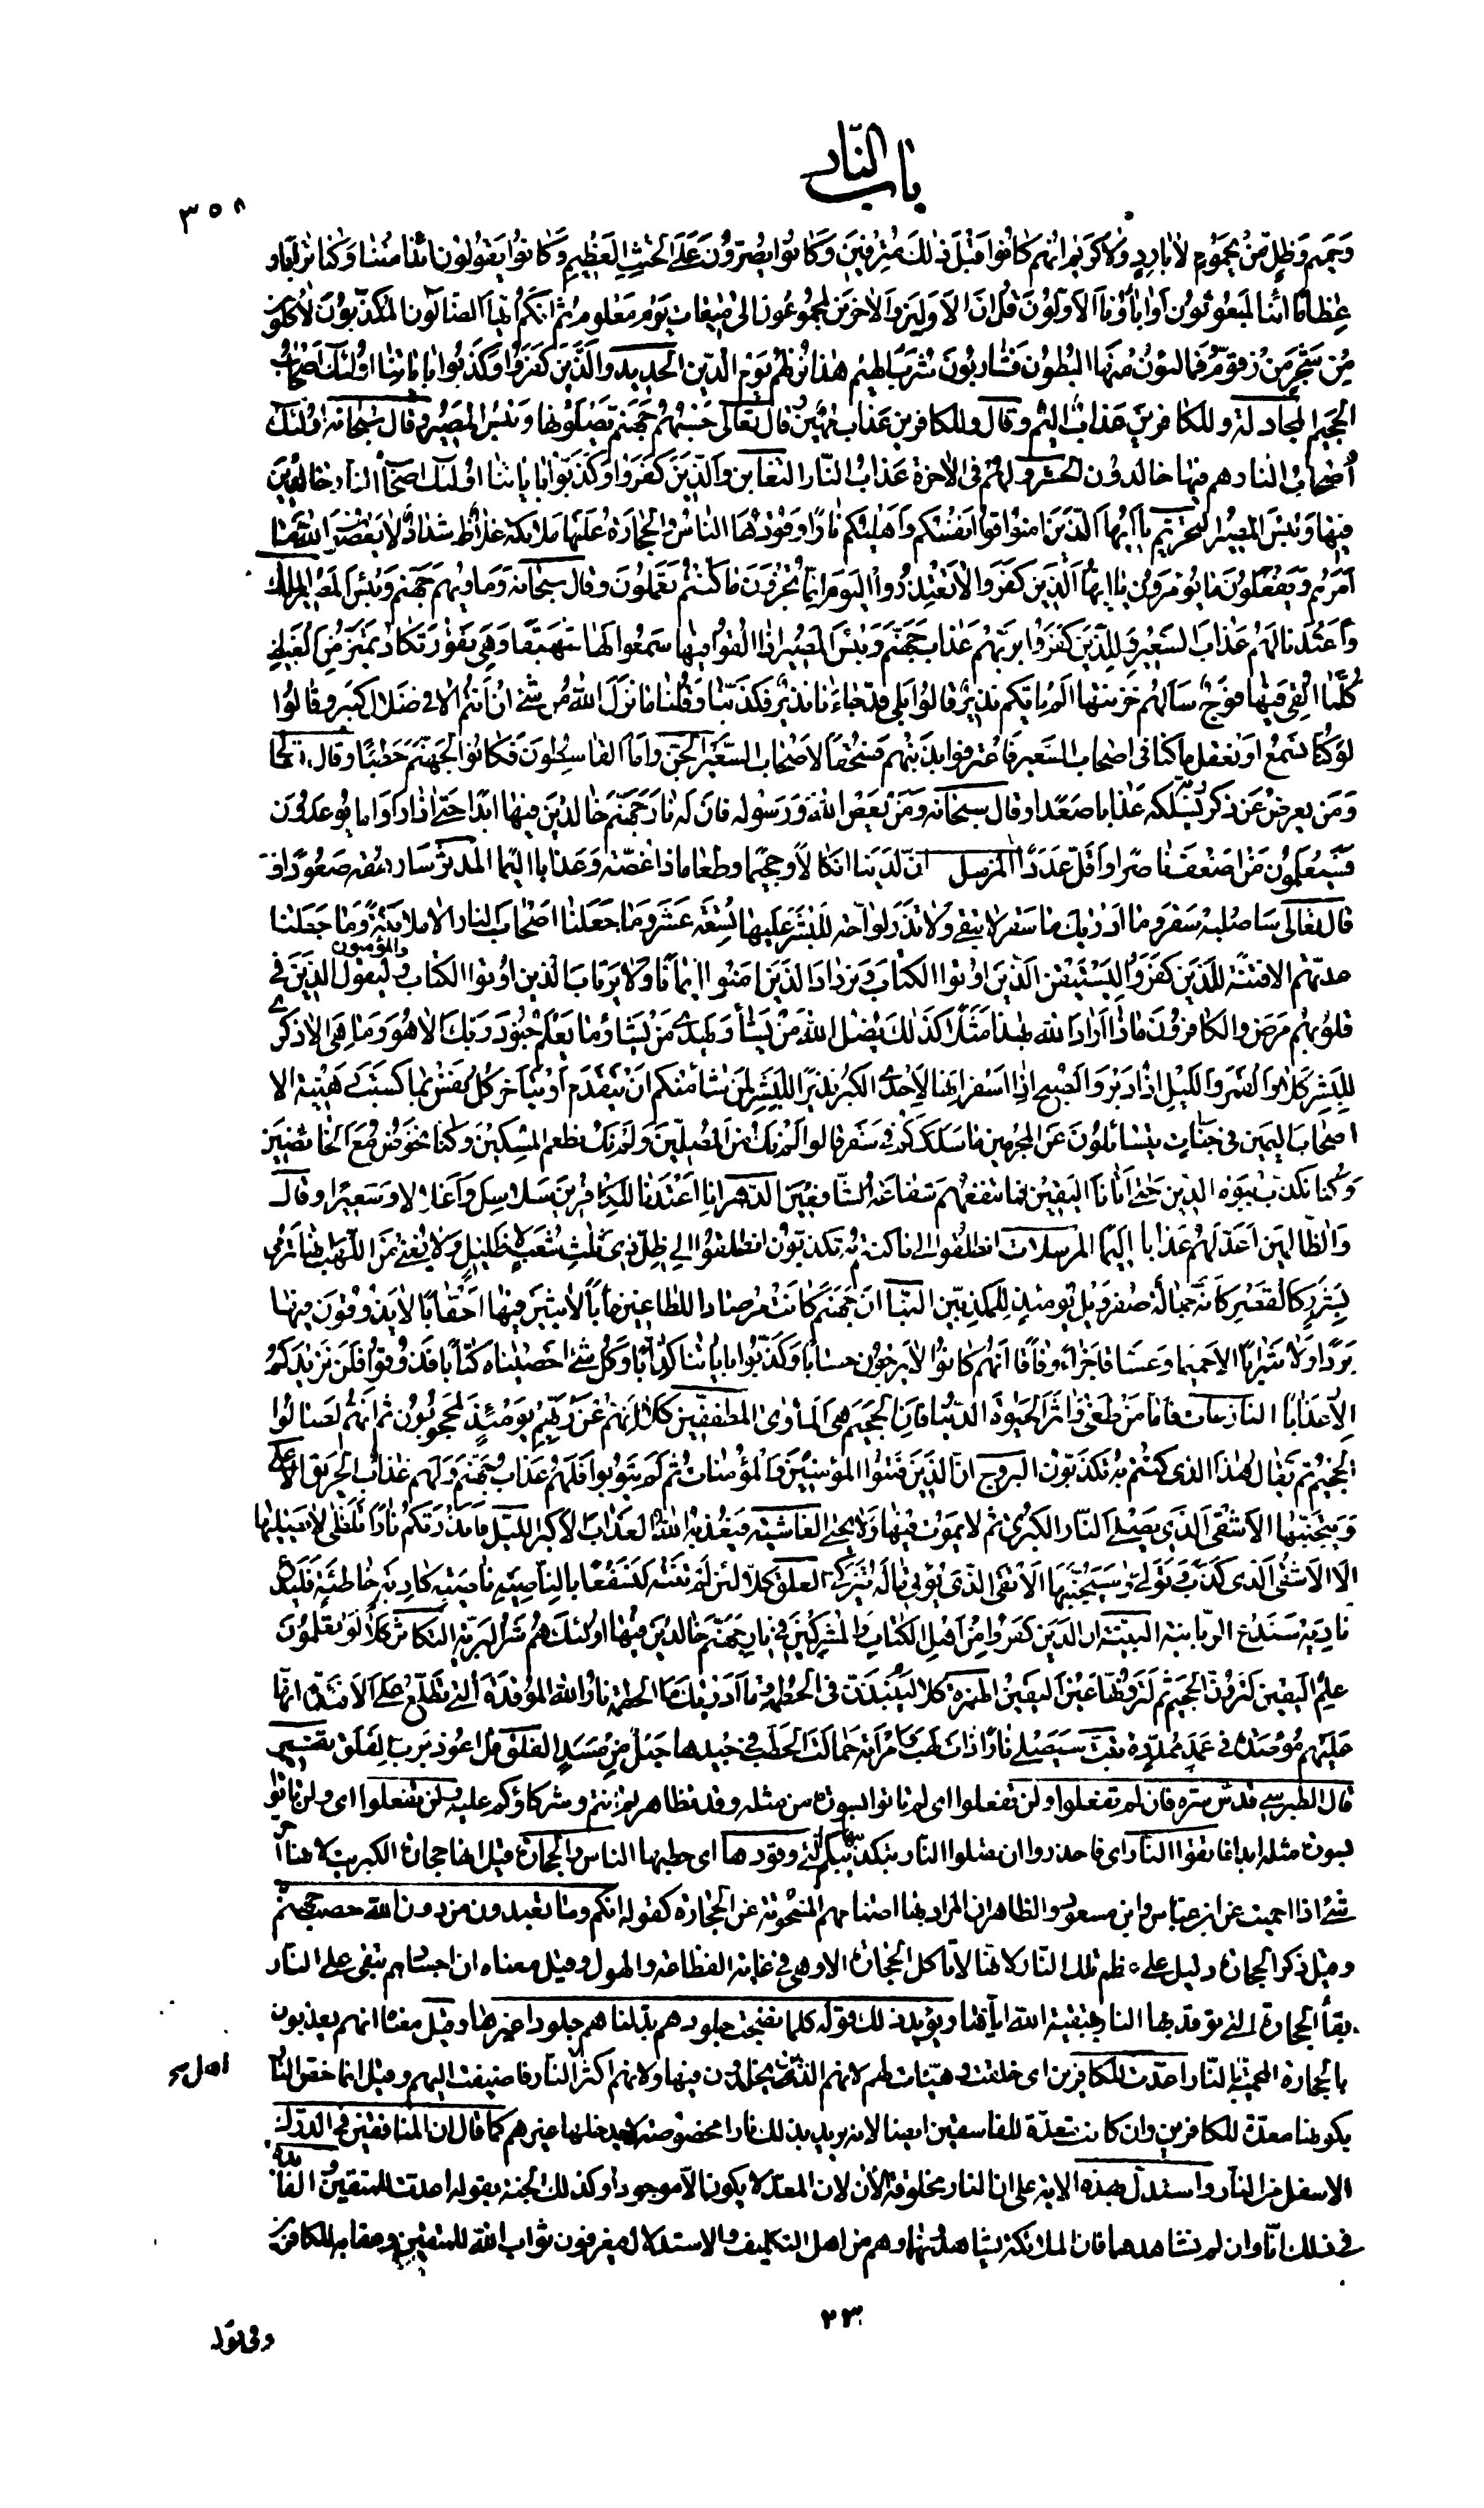 باب النّار
٣٥٨
وَحَمِيمٍ وَظِلٍّ مِنْ يَحْمُومٍ لا بارِدٍ وَلا كَرِيمٍ إنَّهُمْ كانُوا قَبْلَ ذلِكَ مُتْرَفِينَ وَكانُوا يُصِرُّونَ عَلَى الْحِنْثِ الْعَظِيمِ وَكانُوا يَقُولُونَ أئِذا مِتْنا وَكُنّا تُراباً وَ
عِظاماً أئِنّا لَمَبْعُوثُونَ أوَآباؤُنَا الأوَّلُونَ قُلْ إنَّ الأوَّلِينَ وَالآخِرِينَ لَمَجْمُوعُونَ إلى مِيقاتِ يَوْمٍ مَعْلُومٍ ثُمَّ إنَّكُمْ أيُّهَا الضّالُّونَ الْمُكَذِّبُونَ لآكِلُونَ
مِنْ شَجَرٍ مِنْ زَقُّومٍ فَمالِئُونَ مِنْهَا الْبُطُونَ فَشارِبُونَ شُرْبَ الْهِيمِ هذا نُزُلُهُمْ يَوْمَ الدِّينِ الحديد وَالَّذِينَ كَفَرُوا وَكَذَّبُوا بِآياتِنا أُولئِكَ أصْحابُ
الْجَحِيمِ المجادلة وللكافرين عَذابٌ ألِيمٌ وقال وللكافرين عَذابٌ مُهِينٌ قال تعالى حَسْبُهُمْ جَهَنَّمُ يَصْلَوْنَها وَبِئْسَ الْمَصِيرُ وقال سبحانه أُولئِكَ
أصْحابُ النار هم فيها خالدون الحشر ولهم في الآخرة عَذابُ النّارِ التغابن وَالَّذِينَ كَفَرُوا وَكَذَّبُوا بِآياتِنا أُولئِكَ أصْحابُ النّارِ خالِدِينَ
فِيها وَبِئْسَ الْمَصِيرُ التحريم يا أيُّهَا الَّذِينَ آمَنُوا قُوا أنْفُسَكُمْ وَأهْلِيكُمْ ناراً وَقُودُهَا النّاسُ وَالْحِجارَةُ عَلَيْها مَلائِكَةٌ غِلاظٌ شِدادٌ لا يَعْصُونَ اللهَ ما
أمَرَهُمْ وَيَفْعَلُونَ ما يُؤْمَرُونَ يا أيُّهَا الَّذِينَ كَفَرُوا لا تَعْتَذِرُوا الْيَوْمَ إنَّما تُجْزَوْنَ ما كُنْتُمْ تَعْمَلُونَ وقال سبحانه وَمَأْواهُمْ جَهَنَّمُ وَبِئْسَ الْمَصِيرُ الملك
وَأعْتَدْنا لَهُمْ عَذابَ السَّعِيرِ وَلِلَّذِينَ كَفَرُوا بِرَبِّهِمْ عَذابُ جَهَنَّمَ وَبِئْسَ الْمَصِيرُ إذا أُلْقُوا فِيها سَمِعُوا لَها شَهِيقاً وَهِيَ تَفُورُ تَكادُ تَمَيَّزُ مِنَ الْغَيْظِ
كُلَّما أُلْقِيَ فِيها فَوْجٌ سَألَهُمْ خَزَنَتُها ألَمْ يَأْتِكُمْ نَذِيرٌ قالُوا بَلى قَدْ جاءَنا نَذِيرٌ فَكَذَّبْنا وَقُلْنا ما نَزَّلَ اللهُ مِنْ شَيْءٍ إنْ أنْتُمْ إلّا فِي ضَلالٍ كَبِيرٍ وَقالُوا
لَوْ كُنّا نَسْمَعُ أوْ نَعْقِلُ ما كُنّا في أصْحابِ السَّعِيرِ فَاعْتَرَفُوا بِذَنْبِهِمْ فَسُحْقاً لأصْحابِ السَّعِيرِ الجن وَأمَّا الْقاسِطُونَ فَكانُوا لِجَهَنَّمَ حَطَباً وقال تعالى
وَمَنْ يعرض عَنْ ذِكْرِ رَبِّهِ يَسْلُكْهُ عَذاباً صَعَداً وقال سبحانه وَمَنْ يَعْصِ اللهَ وَرَسُولَهُ فَإنَّ لَهُ نارَ جَهَنَّمَ خالِدِينَ فِيها أبَداً حَتّى إذا رَأَوْا ما يُوعَدُونَ
فَسَيَعْلَمُونَ مَنْ أضْعَفُ ناصِراً وَأقَلُّ عَدَداً المزمل إنَّ لَدَيْنا أنْكالاً وَجَحِيماً وَطَعاماً ذا غُصَّةٍ وَعَذاباً ألِيماً المدثر سَأُرْهِقُهُ صَعُوداً و
قال تعالى سَأُصْلِيهِ سَقَرَ وَما أدْراكَ ما سَقَرُ لا تُبْقِي وَلا تَذَرُ لَوّاحَةٌ لِلْبَشَرِ عَلَيْها تِسْعَةَ عَشَرَ وَما جَعَلْنا أصْحابَ النار إلا ملائكةً وَما جَعَلْنا
عدّتهم إلا فتنة لِلَّذِينَ كَفَرُوا لِيَسْتَيْقِنَ الَّذِينَ أُوتُوا الْكِتابَ وَيَزْدادَ الَّذِينَ آمَنُوا إيماناً وَلا يَرْتابَ الَّذِينَ أُوتُوا الْكِتابَ والمؤمنون وَلِيَقُولَ الَّذِينَ فِي
قُلُوبِهِمْ مَرَضٌ وَالْكافِرُونَ ماذا أرادَ اللهُ بِهذا مَثَلاً كَذلِكَ يُضِلُّ اللهُ مَنْ يَشاءُ وَيَهْدِي مَنْ يَشاءُ وَما يَعْلَمُ جُنُودَ رَبِّكَ إلّا هُوَ وَما هِيَ إلّا ذِكْرى
لِلْبَشَرِ كَلّا وَالْقَمَرِ وَاللَّيْلِ إذْ أدْبَرَ وَالصُّبْحِ إذا أسْفَرَ إنَّها لَإحْدَى الْكُبَرِ نَذِيراً لِلْبَشَرِ لِمَنْ شاءَ مِنْكُمْ أنْ يَتَقَدَّمَ أوْ يَتَأخَّرَ كُلُّ نَفْسٍ بِما كَسَبَتْ رَهِينَةٌ إلا
أصْحابَ الْيَمِينِ في جَنّاتٍ يَتَسائَلُونَ عَنِ الْمُجْرِمِينَ ما سَلَكَكُمْ فِي سَقَرَ قالُوا لَمْ نَكُ مِنَ الْمُصَلِّينَ وَلَمْ نَكُ نُطْعِمُ الْمِسْكِينَ وَكُنّا نَخُوضُ مَعَ الْخائِضِينَ
وَكُنّا نُكَذِّبُ بِيَوْمِ الدِّينِ حَتّى أتانَا الْيَقِينُ فَما تَنْفَعُهُمْ شَفاعَةُ الشّافِعِينَ الدهر إنّا أعْتَدْنا لِلْكافِرِينَ سَلاسِلَ وَأغْلالاً وَسَعِيراً وقال
وَالظّالِمِينَ أعَدَّ لَهُمْ عَذاباً ألِيماً المرسلات انْطَلِقُوا إلى ما كُنْتُمْ بِهِ تُكَذِّبُونَ انْطَلِقُوا إلى ظِلٍّ ذِي ثَلاثِ شُعَبٍ لا ظَلِيلٍ وَلا يُغْنِي مِنَ اللَّهَبِ إنَّها تَرْمِي
بِشَرَرٍ كَالْقَصْرِ كَأنَّهُ جِمالَةٌ صُفْرٌ وَيْلٌ يَوْمَئِذٍ لِلْمُكَذِّبِينَ النبأ إنَّ جَهَنَّمَ كانَتْ مِرْصاداً لِلطّاغِينَ مَآباً لابِثِينَ فِيها أحْقاباً لا يَذُوقُونَ فِيها
بَرْداً وَلا شَراباً إلّا حَمِيماً وَغَسّاقاً جَزاءً وِفاقاً إنَّهُمْ كانُوا لا يَرْجُونَ حِساباً وَكَذَّبُوا بِآياتِنا كِذّاباً وَكُلَّ شَيْءٍ أحْصَيْناهُ كِتاباً فَذُوقُوا فَلَنْ نَزِيدَكُمْ
إلّا عَذاباً النازعات فَأمّا مَنْ طَغى وَآثَرَ الْحَيوةَ الدُّنْيا فَإنَّ الْجَحِيمَ هِيَ الْمَأْوى المطففين كَلّا إنَّهُمْ عَنْ رَبِّهِمْ يَوْمَئِذٍ لَمَحْجُوبُونَ ثُمَّ إنَّهُمْ لَصالُوا
الْجَحِيمِ ثُمَّ يُقالُ هذَا الَّذِي كُنْتُمْ بِهِ تُكَذِّبُونَ البروج إنَّ الَّذِينَ فَتَنُوا الْمُؤْمِنِينَ وَالْمُؤْمِناتِ ثُمَّ لَمْ يَتُوبُوا فَلَهُمْ عَذابُ جَهَنَّمَ وَلَهُمْ عَذابُ الْحَرِيقِ الأعلى
وَيَتَجَنَّبُهَا الأشْقَى الَّذِي يَصْلَى النّارَ الْكُبْرى ثُمَّ لا يَمُوتُ فِيها وَلا يَحْيى الغاشية فَيُعَذِّبُهُ اللهُ الْعَذابَ الأكْبَرَ الليل فَأنْذَرْتُكُمْ ناراً تَلَظّى لا يَصْلاها
إلَّا الأشْقَى الَّذِي كَذَّبَ وَتَوَلّى وَسَيُجَنَّبُهَا الأتْقَى الَّذِي يُؤْتِي مالَهُ يَتَزَكّى العلق كَلّا لَئِنْ لَمْ يَنْتَهِ لَنَسْفَعاً بِالنّاصِيَةِ ناصِيَةٍ كاذِبَةٍ خاطِئَةٍ فَلْيَدْعُ
نادِيَهُ سَنَدْعُ الزَّبانِيَةَ البينة إنَّ الَّذِينَ كَفَرُوا مِنْ أهْلِ الْكِتابِ وَالْمُشْرِكِينَ فِي نارِ جَهَنَّمَ خالِدِينَ فِيها أُولئِكَ هُمْ شَرُّ الْبَرِيَّةِ التكاثر كَلّا لَوْ تَعْلَمُونَ
عِلْمَ الْيَقِينِ لَتَرَوُنَّ الْجَحِيمَ ثُمَّ لَتَرَوُنَّها عَيْنَ الْيَقِينِ الهمزة كَلّا لَيُنْبَذَنَّ فِي الْحُطَمَةِ وَما أدْراكَ مَا الْحُطَمَةُ نارُ اللهِ الْمُوقَدَةُ الَّتِي تَطَّلِعُ عَلَى الأفْئِدَةِ إنَّها
عَلَيْهِمْ مُؤْصَدَةٌ فِي عَمَدٍ مُمَدَّدَةٍ تبت سَيَصْلى ناراً ذاتَ لَهَبٍ وَامْرَأتُهُ حَمّالَةَ الْحَطَبِ فِي جِيدِها حَبْلٌ مِنْ مَسَدٍ الفلق قُلْ أعُوذُ بِرَبِّ الْفَلَقِ تفسير
قال الطبرسي قدّس سرّه فإن لم تفعلوا ولن تفعلوا أي لم تأتوا بسورة من مثله وقد تظاهرتم أنتم وشركاؤكم عليه ولن تفعلوا أي ولن تأتوا
بسورة مثله أبدا فاتقوا النار أي فاحذروا أن تصلوا النار بتكذيبكم التي وقودها أي حطبها الناس والحجارة قيل إنها حجارة الكبريت لأنها أحرّ
شيء إذا أحميت عن ابن عباس وابن مسعود والظاهر أن المراد بها أصنامهم المنحوتة من الحجارة كقوله إنكم وما تعبدون من دون الله حصب جهنم
وقيل ذكر الحجارة دليل على عظم تلك النار لأنها لا تأكل الحجارة إلا وهي في غاية الفظاعة والهول وقيل معناه أن أجسادهم تبقى على النار
بقاء الحجارة التي توقد بها النار بتبقية الله إياها ويؤيد ذلك قوله كلما نضجت جلودهم بدلناهم جلودا غيرها وقيل معناه أنهم يعذبون
بالحجارة المحمية بالنار أعدّت للكافرين أي خلقت وهيّئت لهم لأنهم الذين يخلدون فيها ولأنهم أكثر أهل النار فأضيفت إليهم وقيل إنما خص النار
بكونها معدّة للكافرين وإن كانت معدّة للفاسقين أيضا لأنه يريد بذلك نارا مخصوصة لا يدخلها غيرهم كما قال إن المنافقين في الدرك
الأسفل من النار واستدل بهذه الآية على أن النار مخلوقة الآن لأن المعدّ لا يكون إلا موجودا وكذلك الجنة بقوله أعدت للمتقين والفائدة
في ذلك أنّا وإن لم نشاهدها فإن الملائكة يشاهدونها وهم من أهل التكليف والاستدلال فيعرفون ثواب الله للمتقين وعقابه للكافرين
٢٣
وفي قوله